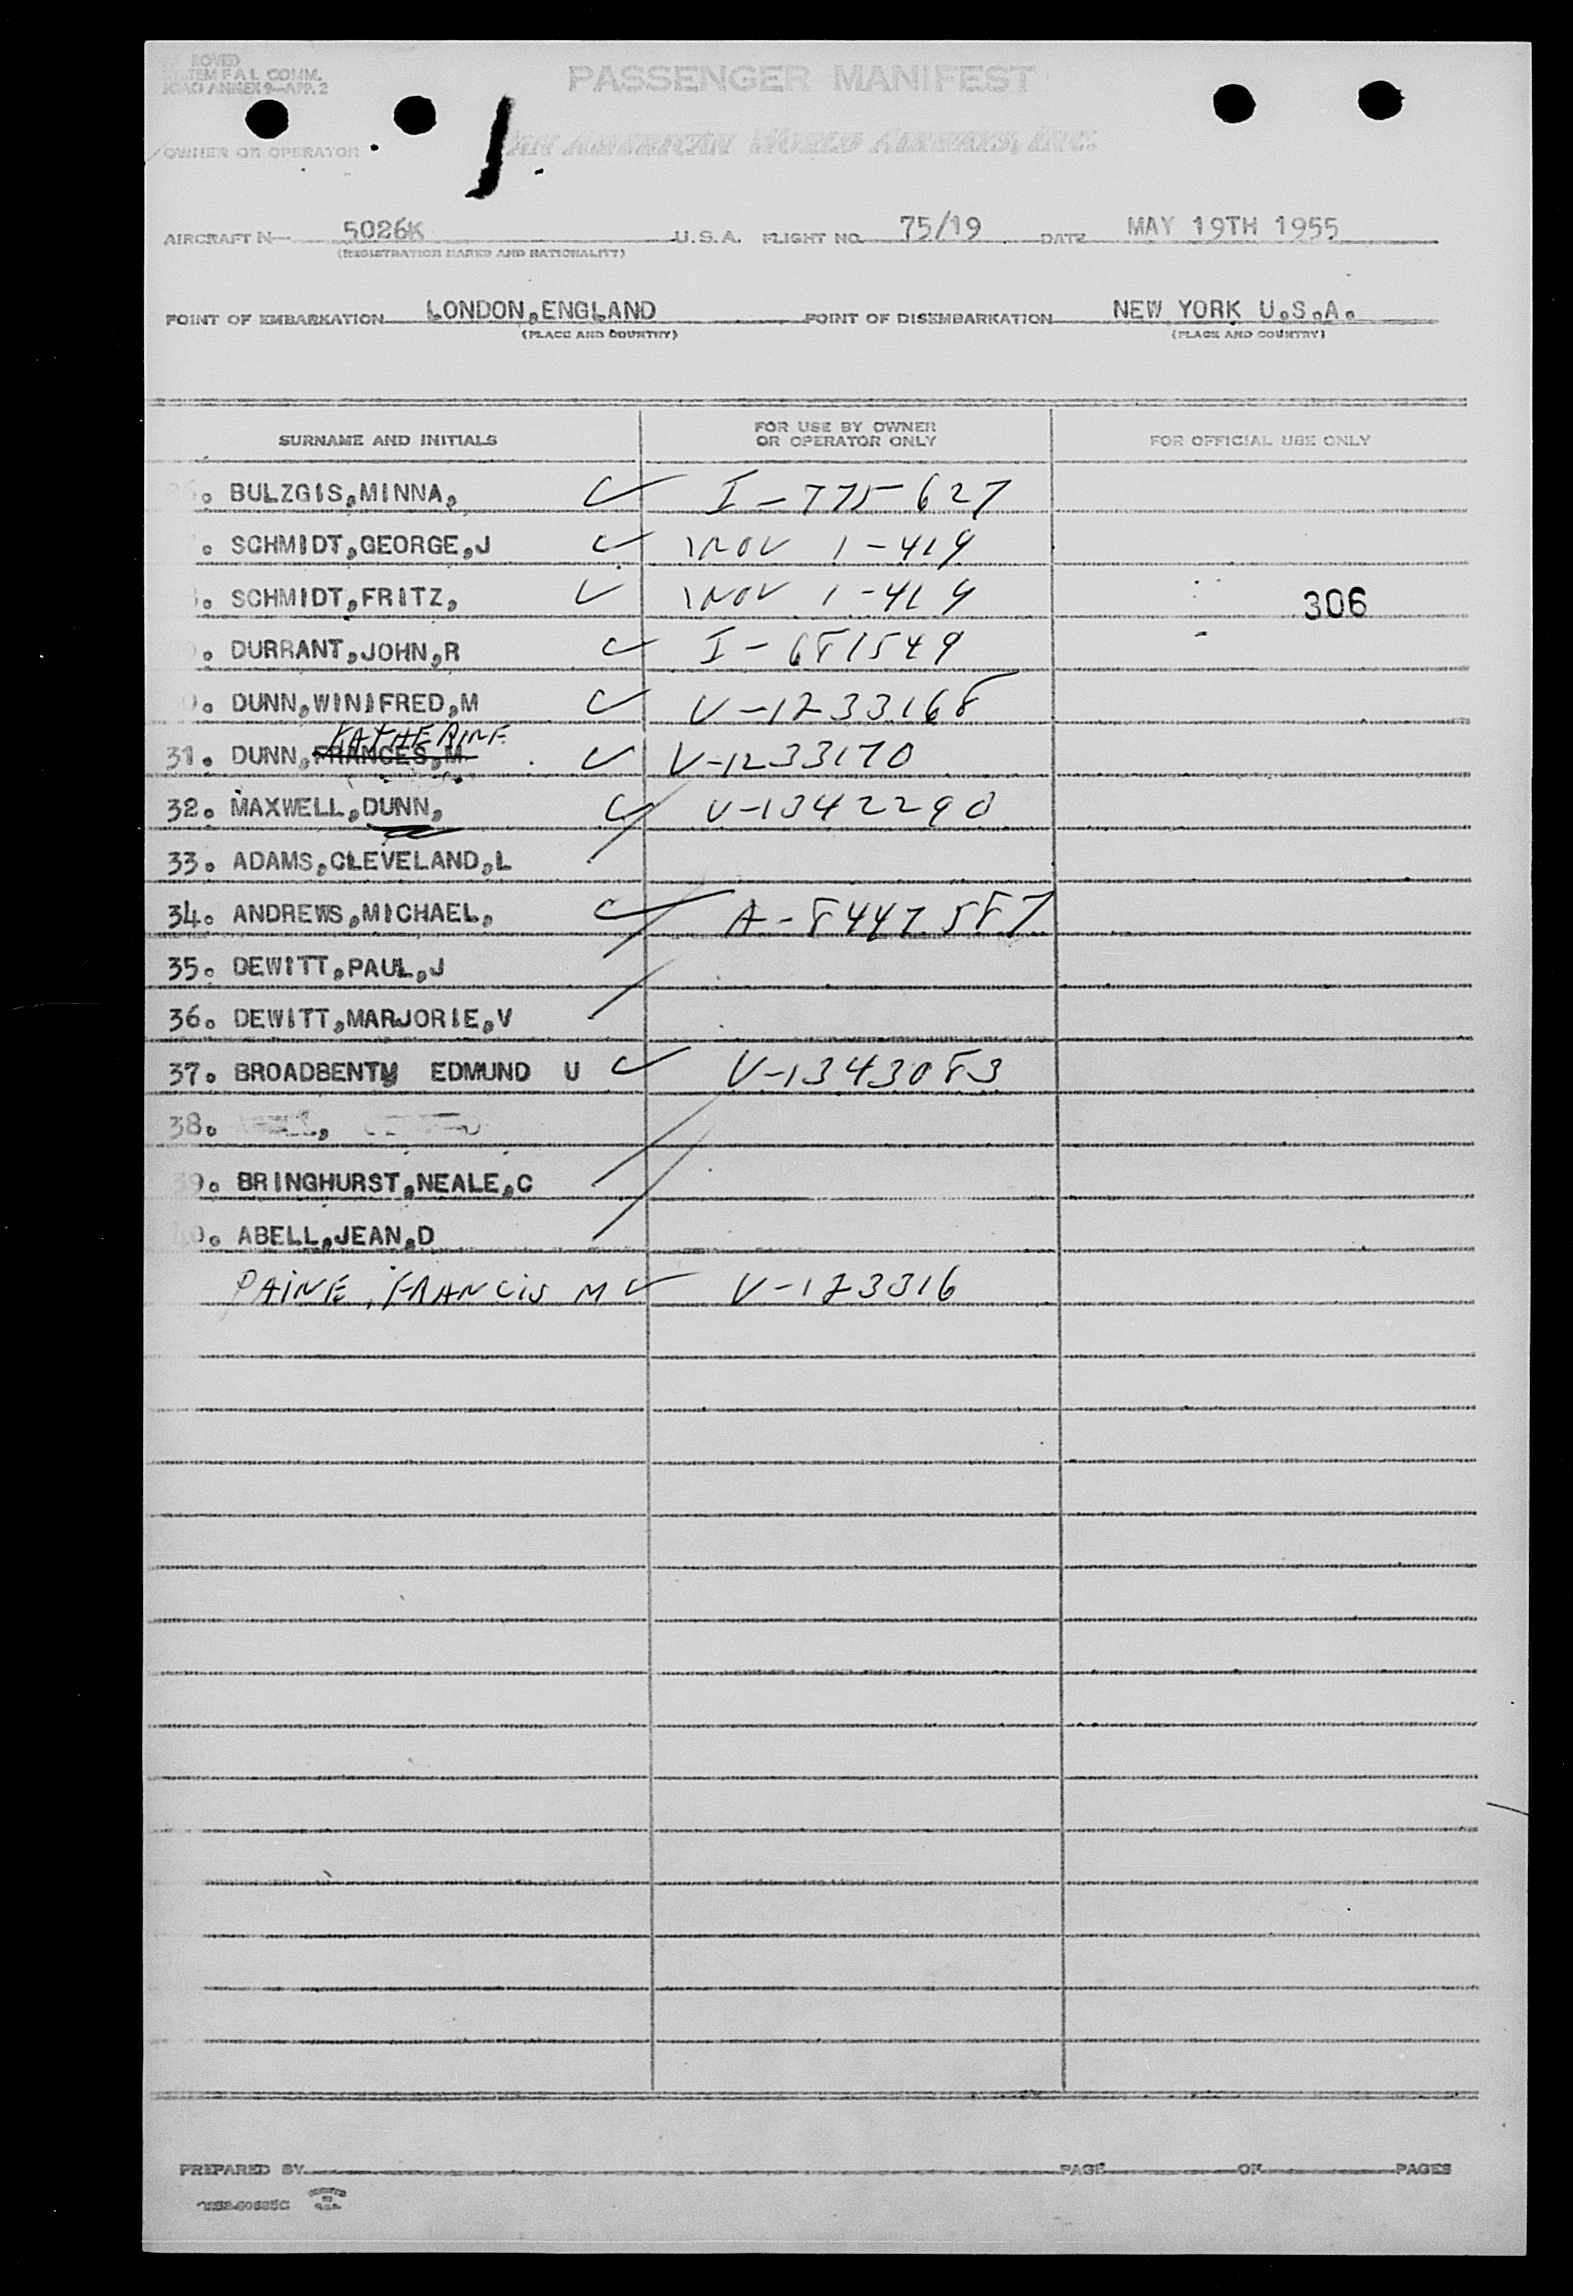 PASSENGER MANIFEST
SYSTEM F A L COMM.
ICAO ANNEX 9—APP. 2
OWNER OR OPERATOR PAN AMERICAN WORLD AIRWAYS, INC.
AIRCRAFT N— 5026K U.S.A. FLIGHT NO. 75/19 DATE MAY 19TH 1955
(REGISTRATION MARKS AND NATIONALITY)
POINT OF EMBARKATION LONDON,ENGLAND POINT OF DISEMBARKATION NEW YORK U.S.A.
(PLACE AND COUNTRY) (PLACE AND COUNTRY)
SURNAME AND INITIALS FOR USE BY OWNER OR OPERATOR ONLY FOR OFFICIAL USE ONLY
BULZGIS,MINNA, ✓ I-775627
SCHMIDT,GEORGE,J ✓ INOV 1-419
SCHMIDT,FRITZ, ✓ INOV 1-419 306
DURRANT,JOHN,R ✓ I-681549
DUNN,WINIFRED,M ✓ V-1233168
KATHERINE
31. DUNN,FRANCES,M ✓ V-1233170
32. MAXWELL,DUNN, ✓ V-1342290
33. ADAMS,CLEVELAND,L
34. ANDREWS,MICHAEL, ✓ A-8447587
35. DEWITT,PAUL,J
36. DEWITT,MARJORIE,V
37. BROADBENTY EDMUND U ✓ V-1343083
38.
39. BRINGHURST,NEALE,C
40. ABELL,JEAN,D
PAINE, FRANCIS M ✓ V-123316
PREPARED BY PAGE OF PAGES